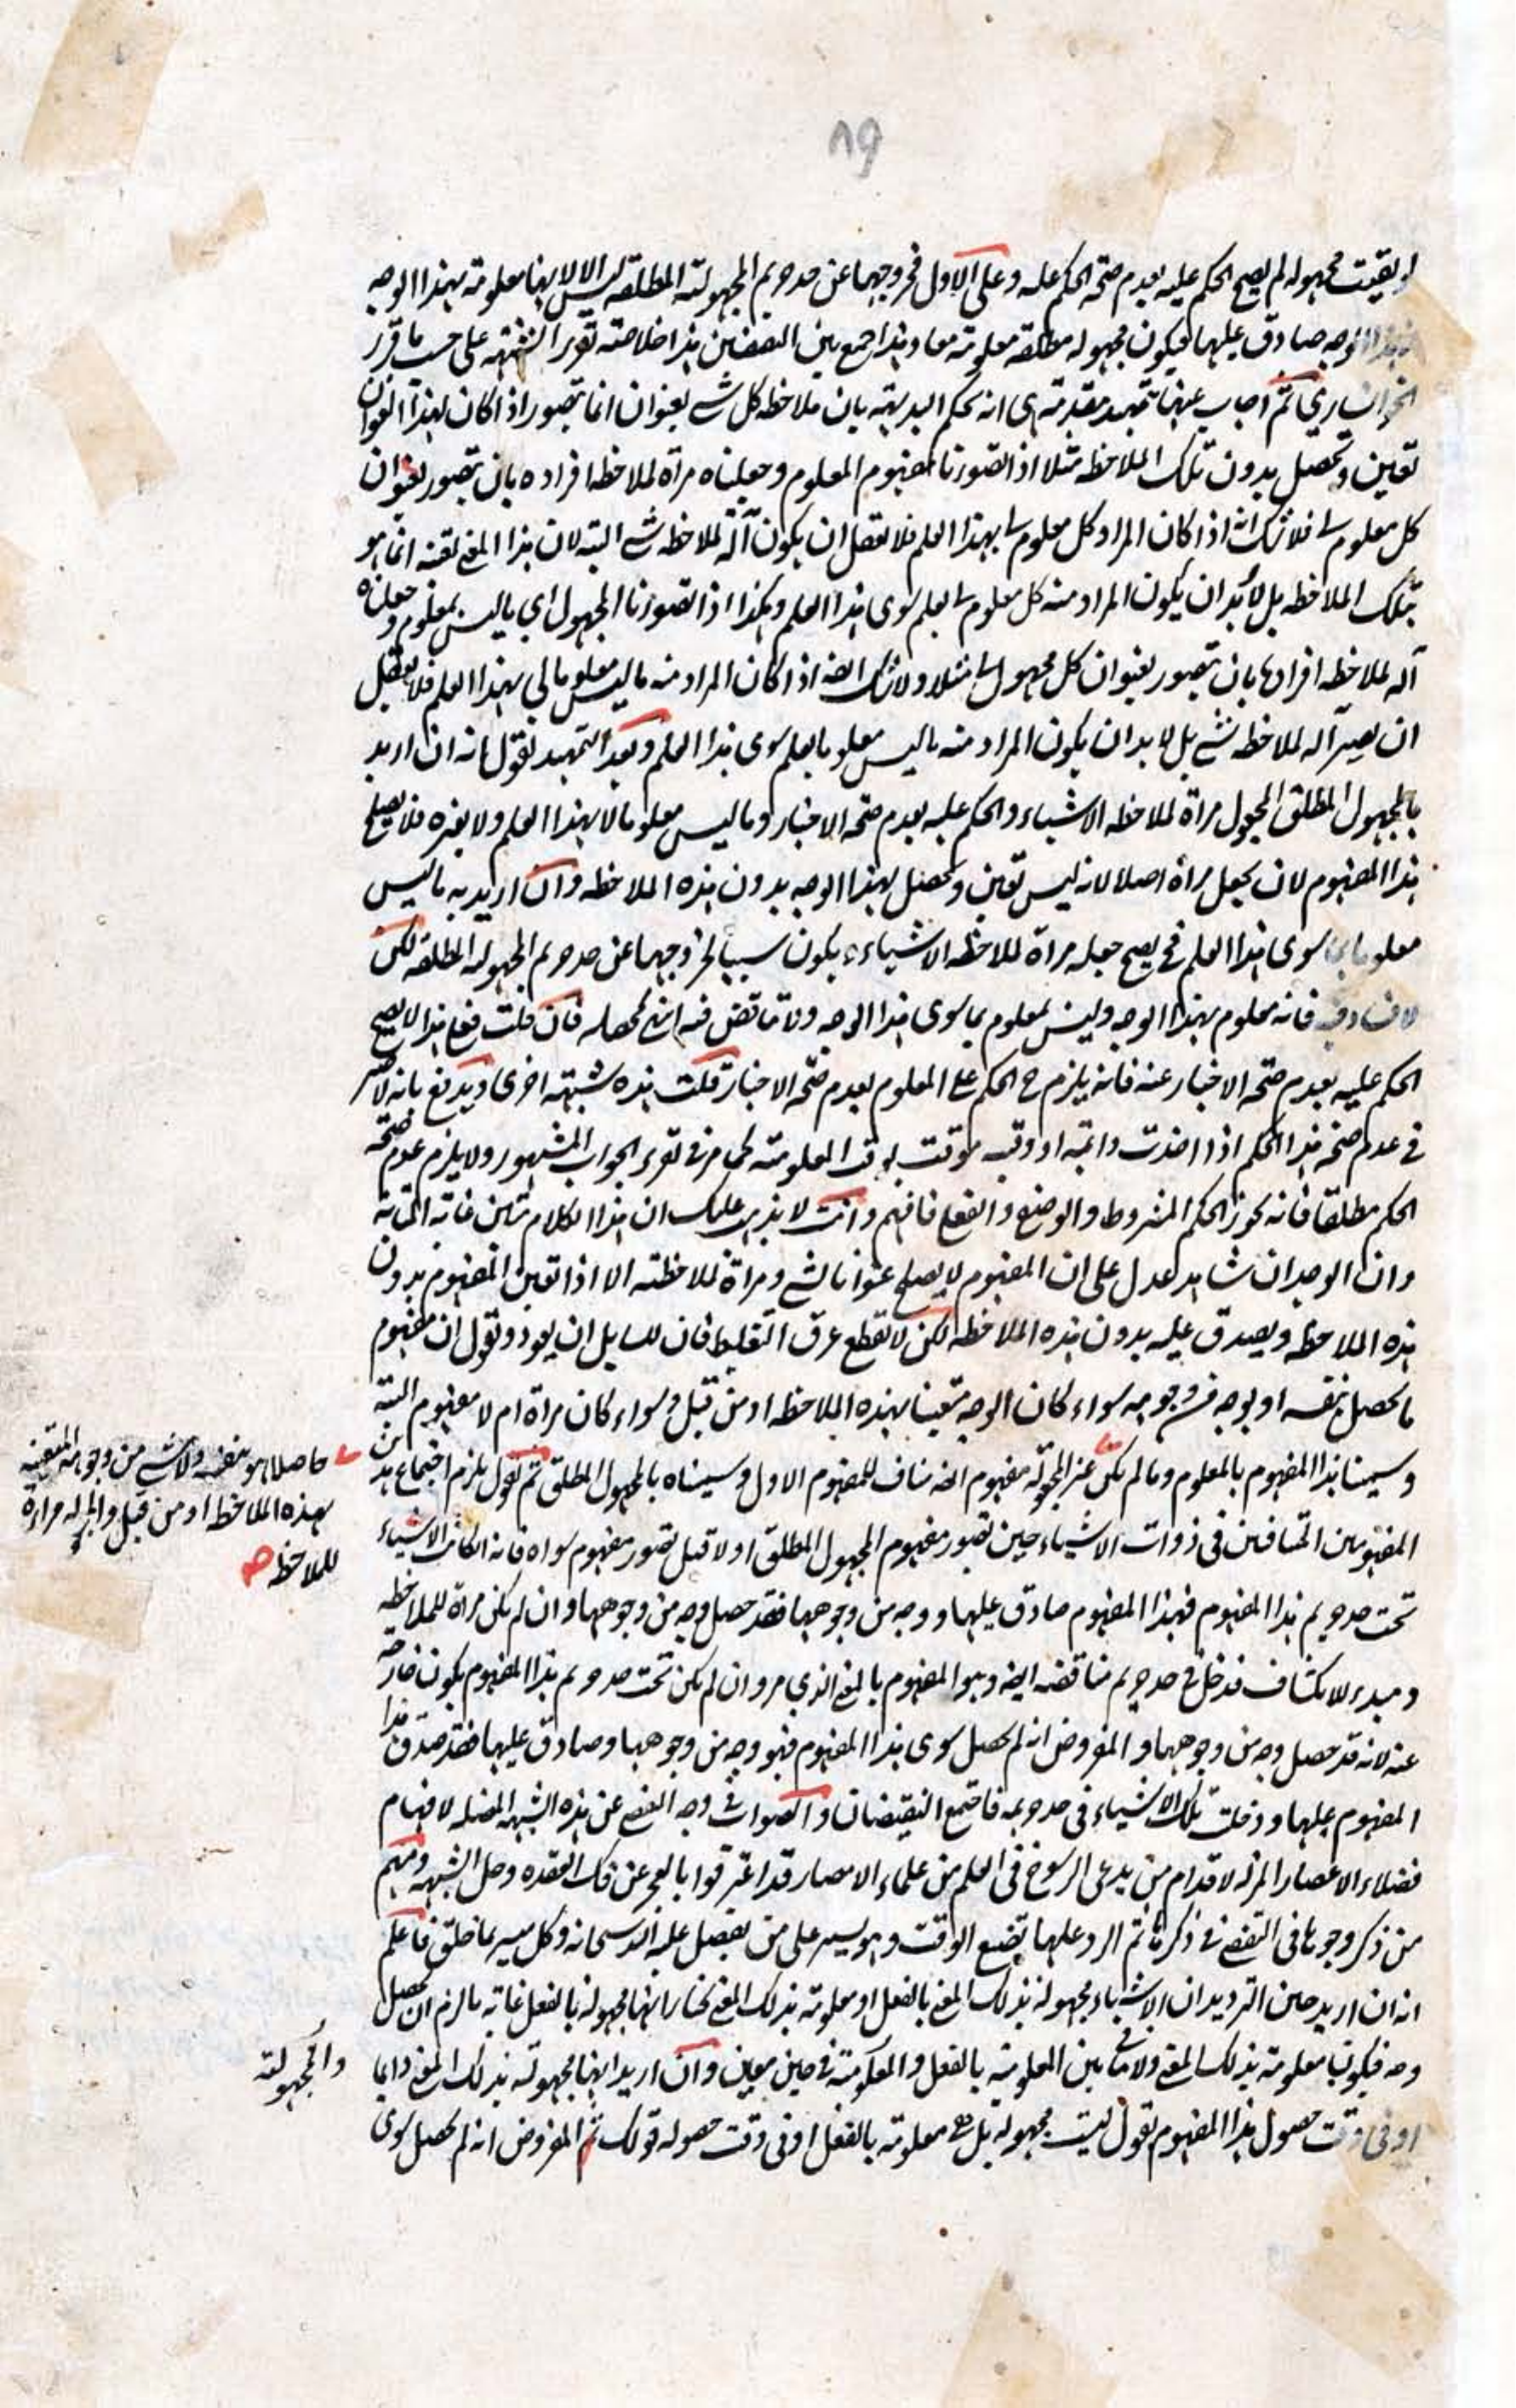 ٨٩
لو بقيت مجهولة لم يصح الحكم عليه بعدم صحة الحكم عليه وعلى الاول فخروجها عن صدويم المجهولية المطلقة ليس الا لانها معلومة بهذا الوجه
الوجه صادق عليها فيكون مجهولة مطلقة معلومة معا وهذا جمع بين هذا خلاصة تقرير الشبهة على حسب ما قرر
ثم اجاب عنها تمهيد مقدمة هي انه يحكم البديهة بان ملاحظة كل شے بعنوان انما يتصور اذا كان لهذا العنوان
تعين وتحصل بدون تلك الملاحظة مثلا اذا تصورنا مفهوم المعلوم وجعلناه مرآة لملاحظة افراده بان يتصور بعنوان
كل معلوم لنا فلا شك انه اذا كان المراد كل معلوم لنا بهذا العلم فلا يعقل ان يكون آلة لملاحظة شے البتة لان هذا المعنى تعينه انما هو
بتلك الملاحظة بل لا بد ان يكون المراد منه كل معلوم لنا بعلم سوى هذا العلم وهكذا اذا تصورنا المجهول اي ما ليس بمعلوم وجعلناه
آلة لملاحظة افرادها بان يتصور بعنوان كل مجهول لنا مثلا ولا شك ايضا اذا كان المراد منه ما ليس معلوما لي بهذا العلم فلا يعقل
ان يصير آلة لملاحظة شے بل لا بد ان يكون المراد منه ما ليس معلوما بعلم سوى هذا العلم وبعد التمهيد نقول انه ان اريد
بالمجهول المطلق المجعول مرآة لملاحظة الاشياء والحكم عليه بعدم صحة الاخبار وما ليس معلوما لا بهذا العلم ولا بغيره فلا يصلح
هذا المفهوم لان يجعل مرآة اصلا لانه ليس تعين وتحصل بهذا الوجه بدون هذه الملاحظة وان اريد به ما ليس
معلوما سوى هذا العلم فح يصح جعله مرآة لملاحظة الاشياء ويكون سببا لخروجها عن صدويم المجهولة المطلقة لكن
فانه معلوم بهذا الوجه وليس بمعلوم بما سوى هذا الوجه ولا تناقض فيه انتهى محصله فان قلت فعلى هذا لا يصح
الحكم عليه بعدم صحة الاخبار عنه فانه يلزم ح الحكم على المعلوم بعدم صحة الاخبار قلت هذه شبهة اخرى ويدفع بانه لا
في عدم صحة هذا الحكم اذا اخذت دائمة او وقتية موقت بوقت المعلومية كما مر في تقرير الجواب المشهور ولا يلزم عدم صحة
الحكم مطلقا فانه يجوز الحكم المشروط والوضع والفعل فافهم وانت لا يذهب عليك ان هذا الكلام متين غاية المتانة
وان الوجدان شاهد عدل على ان المفهوم لا يصلح عنوانا لشے ومرآة لملاحظته الا اذا تعين المفهوم بدون
هذه الملاحظة ويصدق عليه بدون هذه الملاحظة لكن لا تقطع عرق التغليط فان للسايل ان يعود ويقول ان مفهوم
ما يحصل بنفسه او بوجه من وجوهه سواء كان الوجه متعينا بهذه الملاحظة او من قبل وسواء كان مرآة ام لا مفهوم البتة
وسمينا هذا المفهوم بالمعلوم وما لم يكن مفهوم ايضا مناف للمفهوم الاول وسميناه بالمجهول المطلق ثم نقول يلزم اجتماع هذين
المفهومين المتنافيين في ذوات الاشياء حين تصور مفهوم المجهول المطلق اولا قبل تصور مفهوم سواه فانه ان كانت الاشياء
تحت صدويم هذا المفهوم فهذا المفهوم صادق عليها ووجه من وجوهها فقد حصل وجه من وجوهها وان لم يكن مرآة للملاحظة
ومبدء للانكشاف فدخل في صدويم مناقضه ايضا وهو المفهوم بالمعنى الذي مر وان لم يكن تحت صدويم هذا المفهوم يكون خارجة
عنه لانه قد حصل وجه من وجوهها والمفروض انه لم يحصل سوى هذا المفهوم فهو وجه من وجوهها وصادق عليها فقد صدق هذا
المفهوم عليها ودخلت تلك الاشياء في صدويمه فاجتمع النقيضان والصواب في وجه التفصي عن هذه الشبهة المضلة لافهام
فضلاء الاعصار المزلة لاقدام من يدعي الرسوخ في العلم من علماء الامصار قد اعترفوا بالعجز عن فك العقدة وحل الشبهة ومنهم
من ذكر وجوها في التفصي في ذكرها ثم الرد عليها يضيع الوقت وهو يسير على من يفضل عليه الله سبحانه وكل ميسر لما خلق فاعلم
انه ان اريد حين الترديد ان الاشياء مجهولة بذلك المعنى بالفعل او معلومة بذلك المعنى نختار انها مجهولة بالفعل غاية ما لزم ان يحصل
وجه فيكون معلومة بذلك المعنى ولا تنافي بين المعلومية بالفعل والمعلومية في حين معين وان اريد انها مجهولة بذلك المعنى دايما
او في وقت حصول هذا المفهوم نقول ليست مجهولة بل هي معلومة بالفعل او في وقت حصوله قولك ثم المفروض انه لم يحصل سوى
حاصلا هو بنفسه ولا شے من وجوهه المتعينة
بهذه الملاحظة او من قبل مرآة
للملاحظة صح
والمجهولية